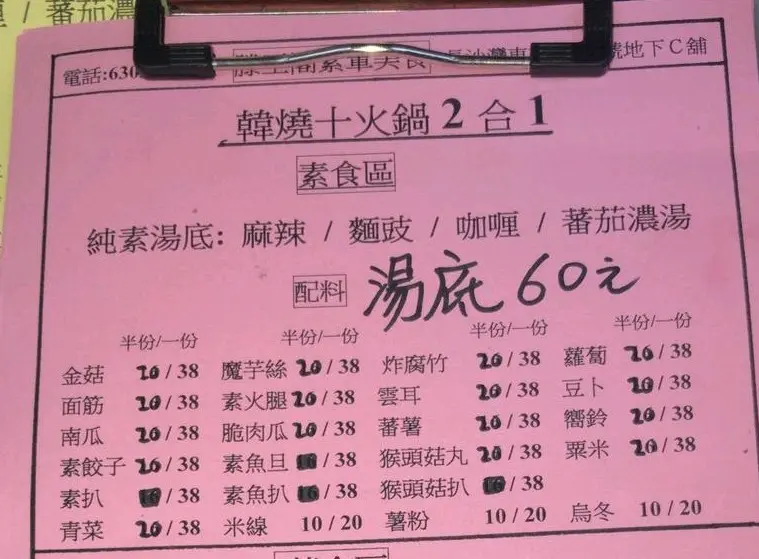 / 蕃茄濃
電話:630 號地下C舖
韓燒十火鍋 2 合 1
素食區
純素湯底: 麻辣 / 麵豉 / 咖喱 / 蕃茄濃湯
配料 湯底 60元
半份/一份 半份/一份 半份/一份 半份/一份
金菇 20 / 38 魔芋絲 20 / 38 炸腐竹 20 / 38 蘿蔔 20 / 38
面筋 20 / 38 素火腿 20 / 38 雲耳 20 / 38 豆卜 20 / 38
南瓜 20 / 38 脆肉瓜 20 / 38 蕃薯 20 / 38 嚮鈴 20 / 38
素餃子 20 / 38 素魚旦 / 38 猴頭菇丸 20 / 38 粟米 20 / 38
素扒 / 38 素魚扒 / 38 猴頭菇扒 / 38
青菜 20 / 38 米線 10 / 20 薯粉 10 / 20 烏冬 10 / 20